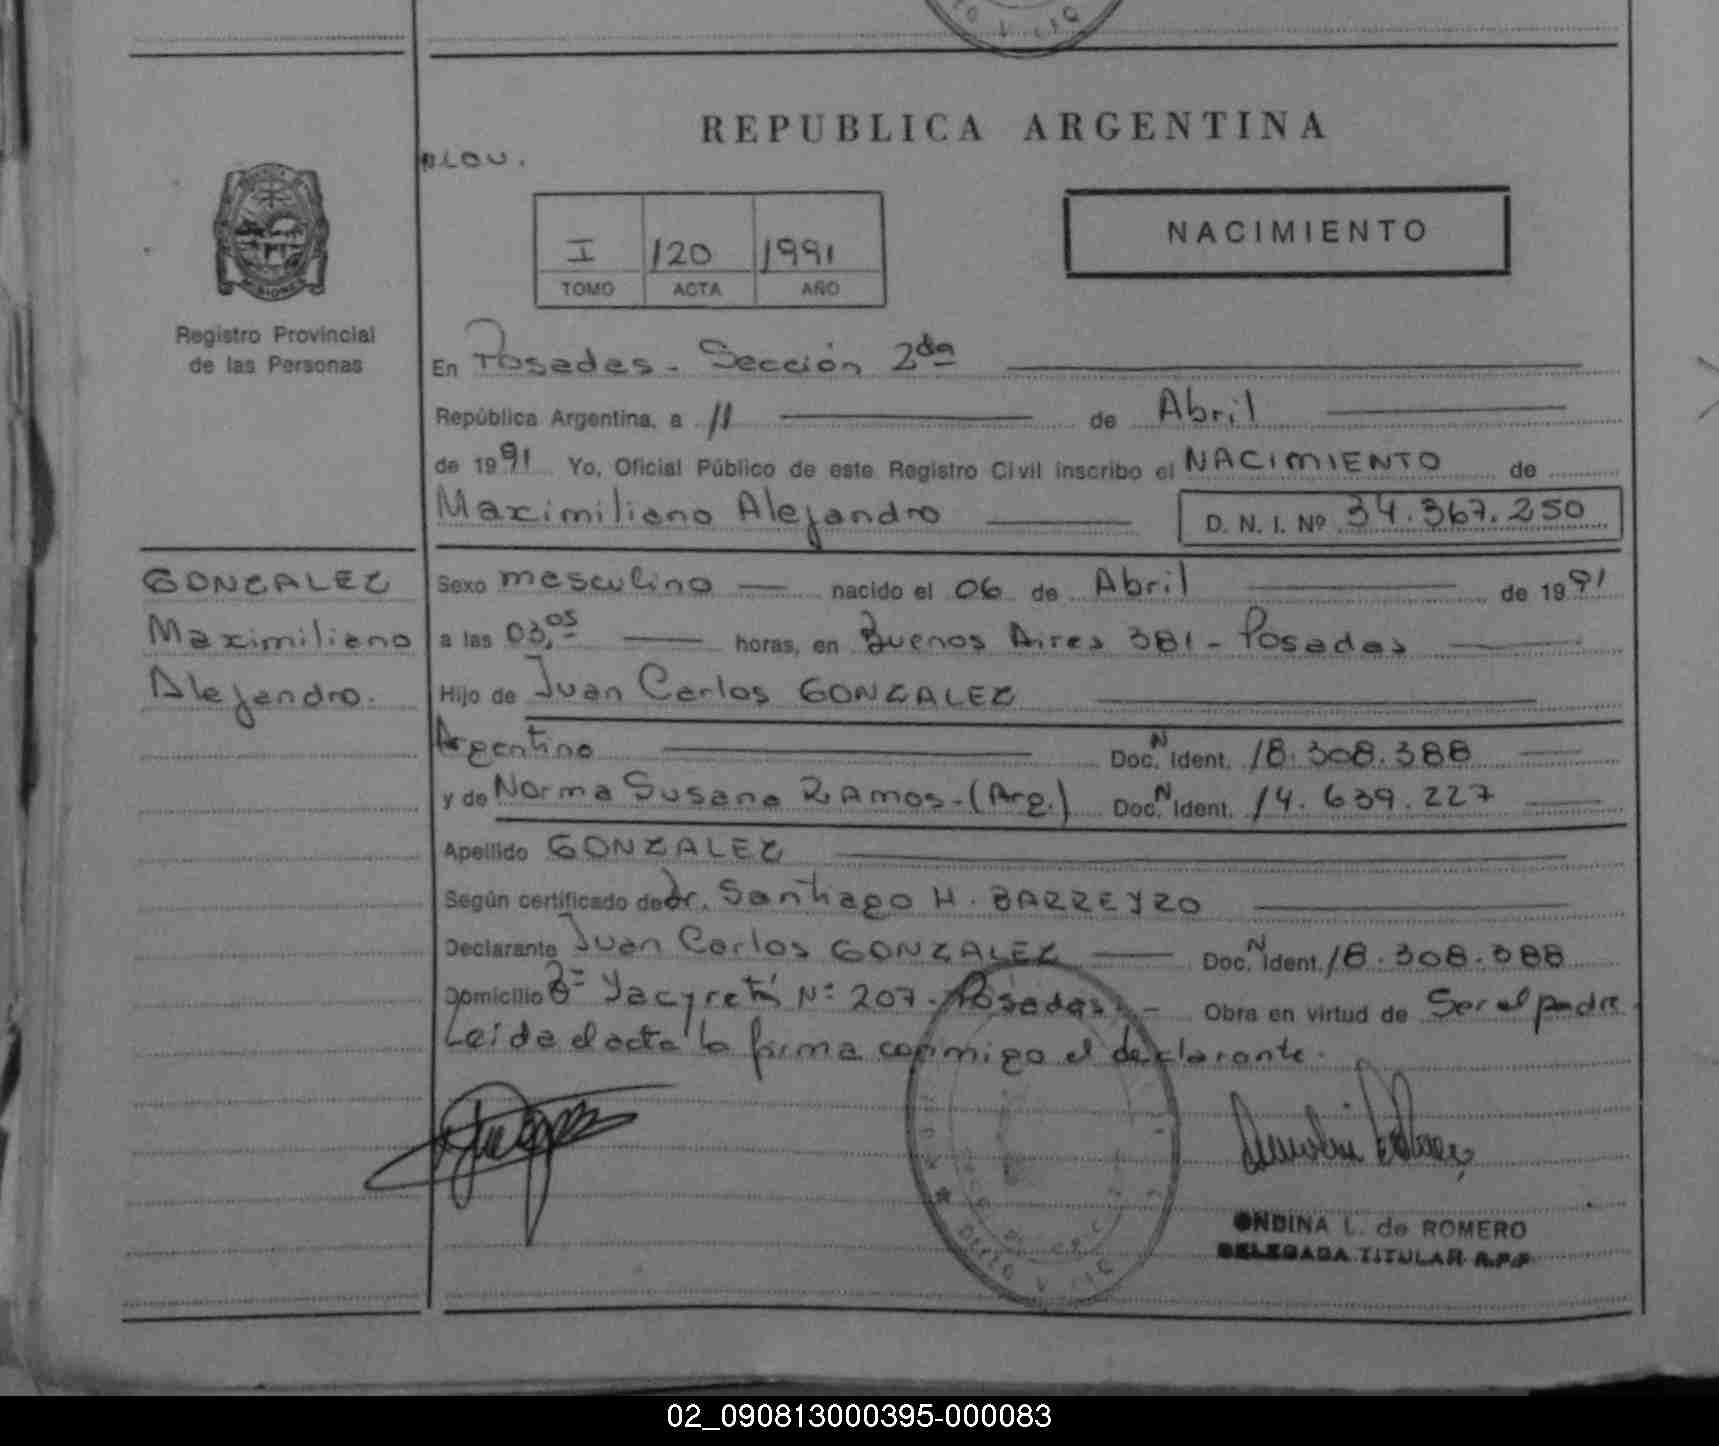 REPUBLICA ARGENTINA
NACIMIENTO
I 120 1991
TOMO ACTA AÑO
Registro Provincial
de las Personas
En Posadas - Sección 2da
República Argentina, a 11 de Abril
de 1991 Yo, Oficial Público de este Registro Civil inscribo el NACIMIENTO de
Maximiliano Alejandro D. N. I. Nº 34.367.250
GONZALEZ
Maximiliano
Alejandro.
Sexo masculino nacido el 06 de Abril de 1991
a las 03,05 horas, en Buenos Aires 381 - Posadas
Hijo de Juan Carlos GONZALEZ
Argentino Doc. N Ident. 18.308.388
y de Norma Susana RAMOS - (Arg.) Doc. N Ident. 14.639.227
Apellido GONZALEZ
Según certificado de dr. Santiago H. BARREYRO
Declarante Juan Carlos GONZALEZ Doc. N Ident. 18.308.388
Domicilio Bº Yacyretá Nº 207 - Posadas - Obra en virtud de Ser el padre.
Leída el acta la firma conmigo el declarante.
ONDINA L. de ROMERO
DELEGADA TITULAR R.P.P
02_090813000395-000083